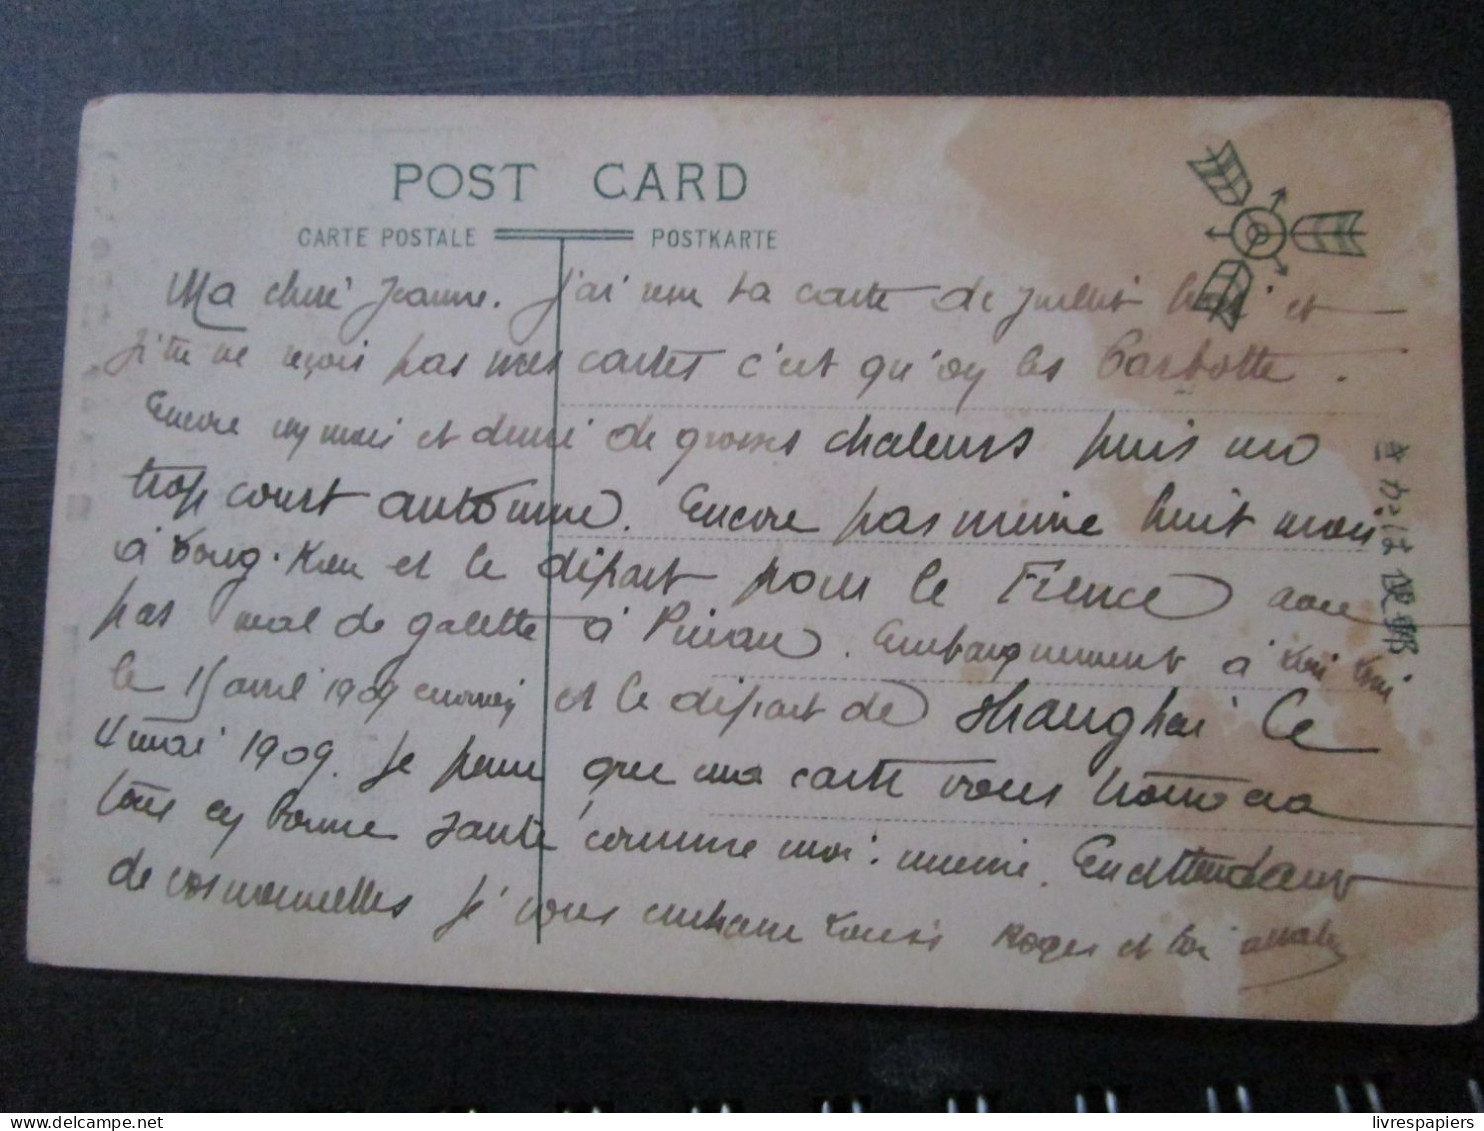 POST CARD
CARTE POSTALE POSTKARTE
Ma cheré Jeanne. J'ai reçu ta carte de juillet et
Si tu ne reçois pas mes cartes c'est qu'on les barbotte.
Encore un mois et demi de grosses chaleurs puis un
trop court automne. Encore pas même huit mois
à Tong-Kou et le départ pour la France avec
pas mal de galette à Pinan. Embarquement à
le 15 avril 1909 environ et le départ de Shanghai le
4 mai 1909. Je pense que ma carte vous trouvera
tous en bonne santé comme moi-meme. Enattendant
de vos nouvelles je vous embrasse Louis Roger et toi
きかは便郵
livrespapiers